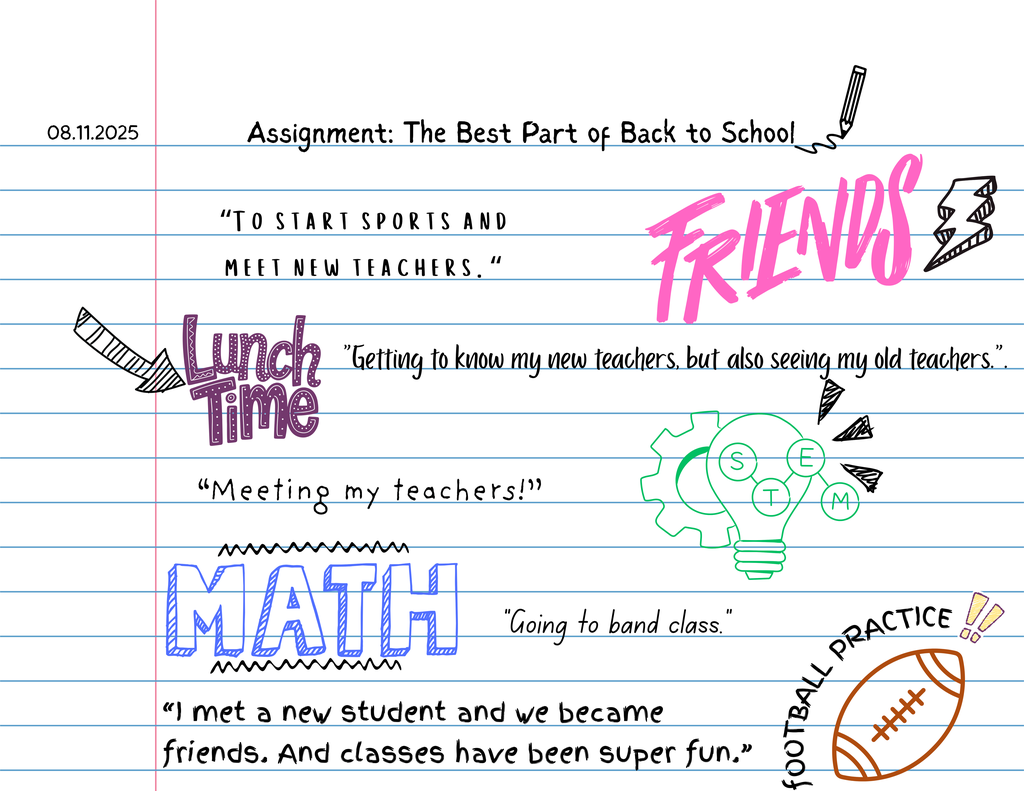 08.11.2025
Assignment: The Best Part of Back to School
"To start sports and
meet new teachers."
FRIENDS
Lunch
Time
"Getting to know my new teachers, but also seeing my old teachers.".
S
T
E
M
"Meeting my teachers!"
MATH
"Going to band class."
FOOTBALL PRACTICE!!
"I met a new student and we became
friends. And classes have been super fun."